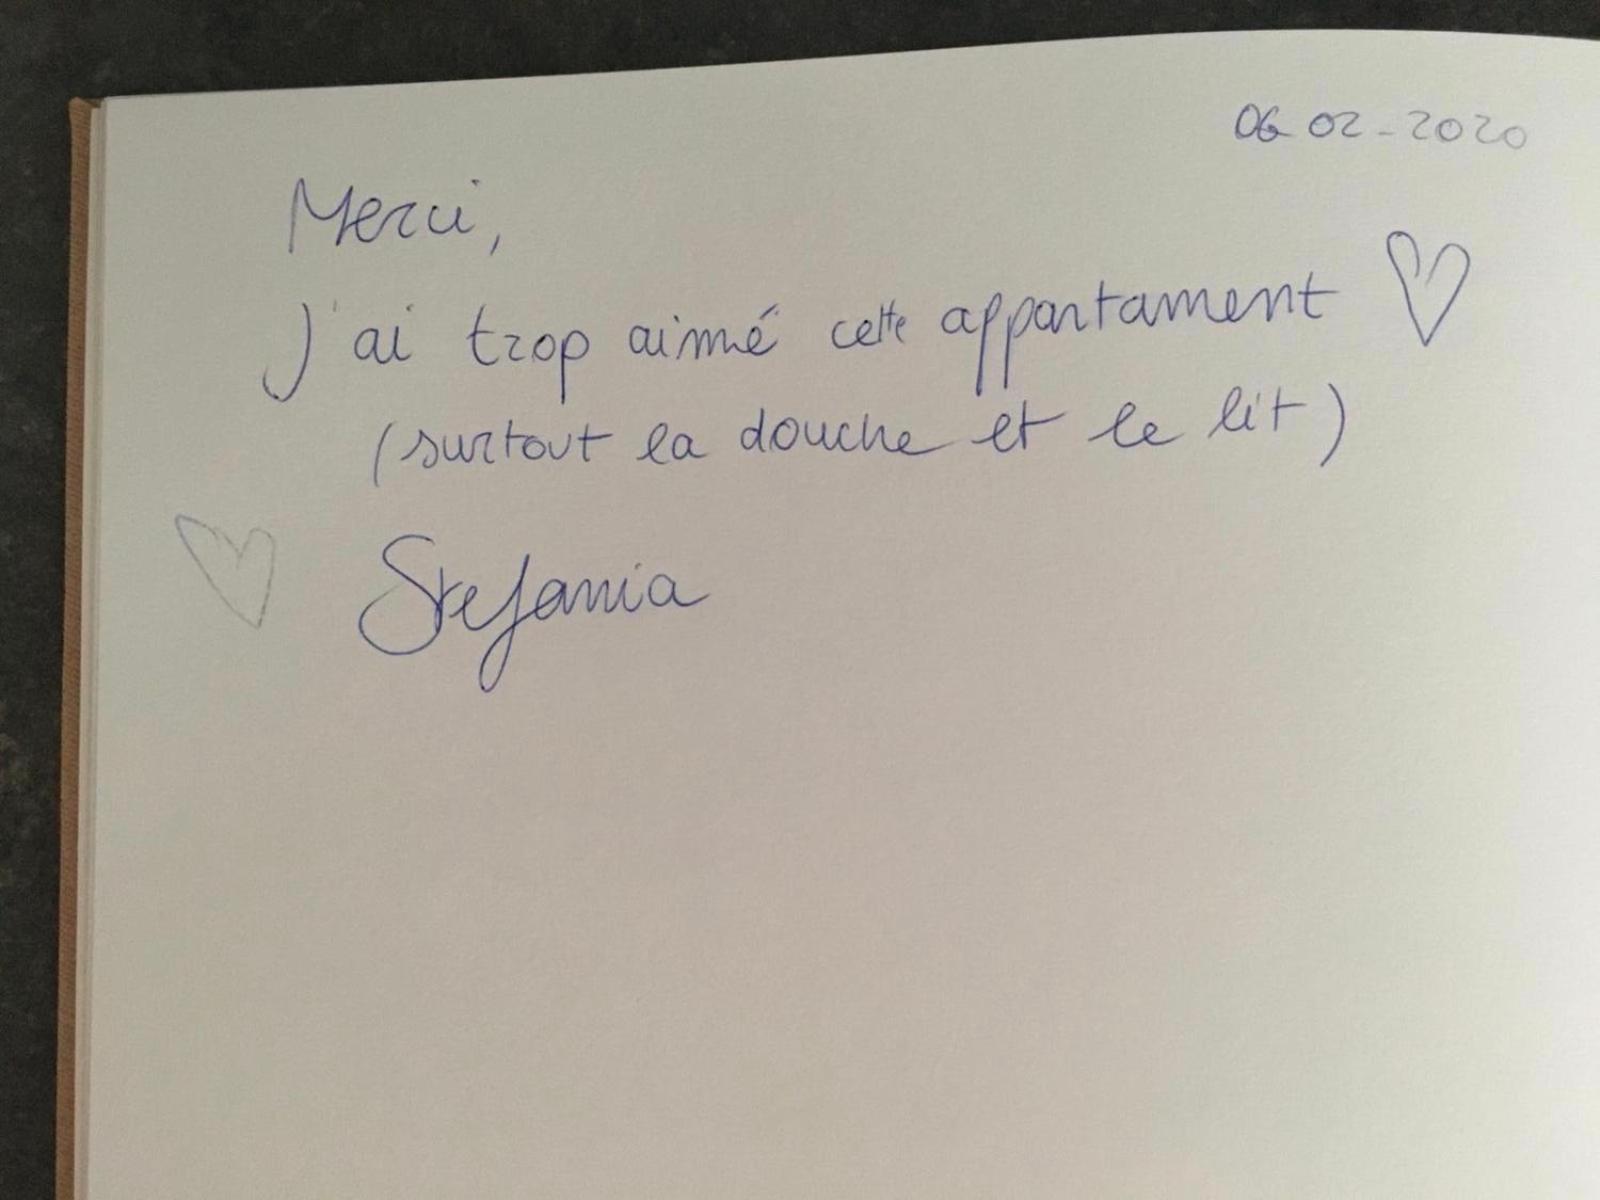 06-02-2020
Merci,
J'ai trop aimé cette appartament ♡
(surtout la douche et le lit)
♡ Stefania